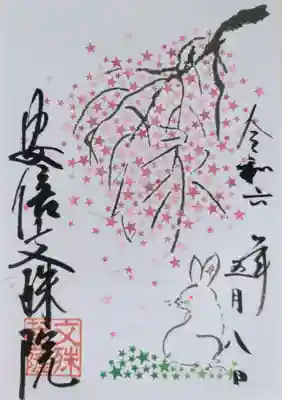 令和六年五月八日
安倍文殊院
文殊